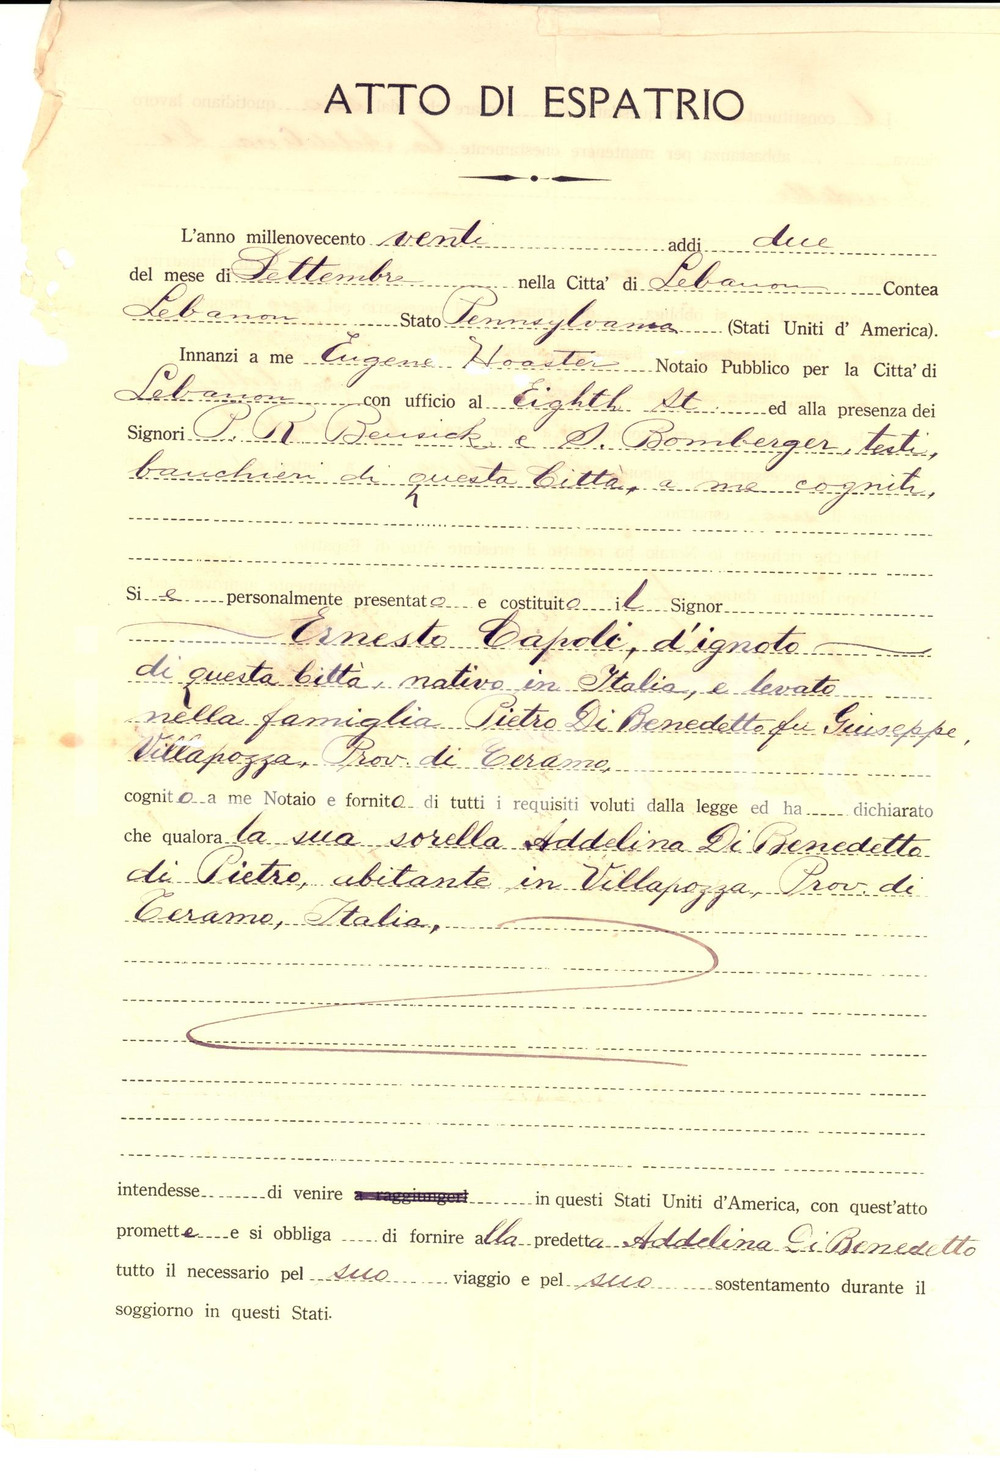 ATTO DI ESPATRIO
L'anno millenovecento venti addi due
del mese di Settembre nella Citta' di Lebanon Contea
Lebanon Stato Pennsylvania (Stati Uniti d' America).
Innanzi a me Eugene Hoaster Notaio Pubblico per la Citta' di
Lebanon con ufficio al Eighth St. ed alla presenza dei
Signori P. R. Beusick e S. Bomberger, testi,
banchieri di questa Città, a me cogniti,
Si e personalmente presentato e costituito il Signor
Ernesto Capoli, d'ignoto
di questa Città, nativo in Italia, e levato
nella famiglia Pietro Di Benedetto fu Giuseppe,
Villapozza, Prov. di Teramo,
cognito a me Notaio e fornito di tutti i requisiti voluti dalla legge ed ha dichiarato
che qualora la sua sorella Addelina Di Benedetto
di Pietro, abitante in Villapozza, Prov. di
Teramo, Italia,
intendesse di venire a raggiungerl in questi Stati Uniti d'America, con quest'atto
promette e si obbliga di fornire alla predetta Addelina Di Benedetto
tutto il necessario pel suo viaggio e pel suo sostentamento durante il
soggiorno in questi Stati.